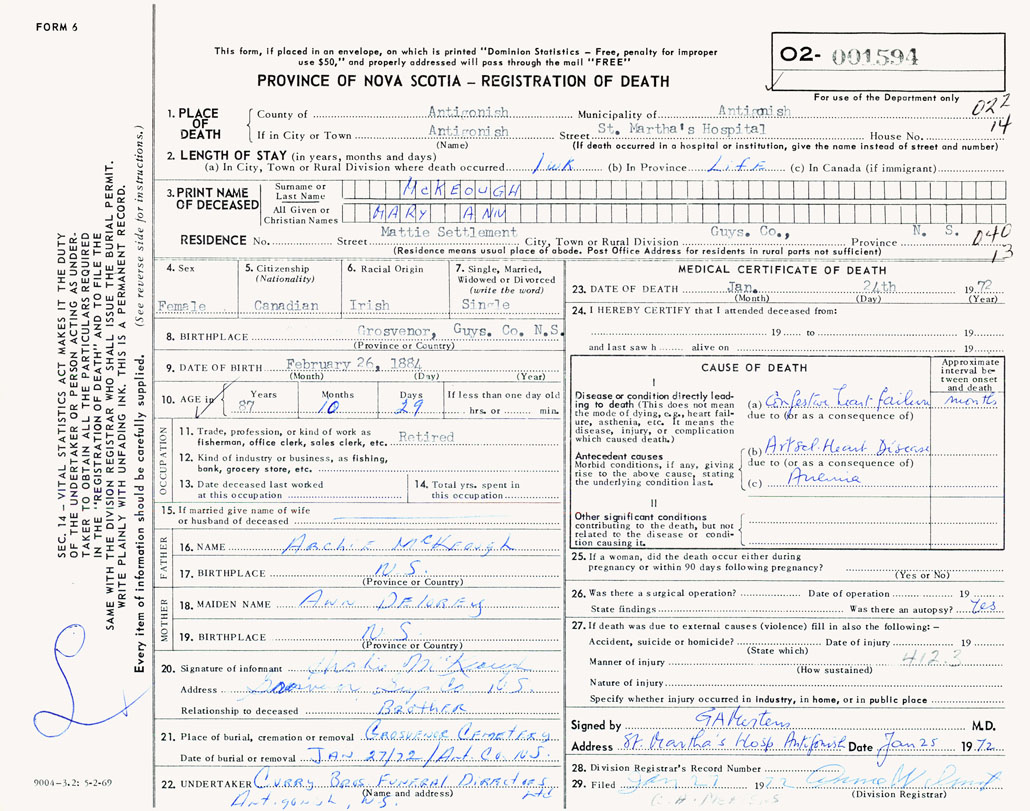 FORM 6
This form, if placed in an envelope, on which is printed "Dominion Statistics – Free, penalty for improper
use $50," and properly addressed will pass through the mail "FREE"
PROVINCE OF NOVA SCOTIA – REGISTRATION OF DEATH
02- 001594
For use of the Department only
022
14
1. PLACE OF DEATH
County of Antigonish Municipality of Antigonish
If in City or Town Antigonish Street St. Martha's Hospital House No.
(Name) (If death occurred in a hospital or institution, give the name instead of street and number)
2. LENGTH OF STAY (in years, months and days)
(a) In City, Town or Rural Division where death occurred 1 wk (b) In Province Life (c) In Canada (if immigrant)
3. PRINT NAME OF DECEASED
Surname or Last Name McKEOUGH
All Given or Christian Names MARY ANN
RESIDENCE No. Street Mattie Settlement City, Town or Rural Division Guys. Co., Province N. S.
(Residence means usual place of abode. Post Office Address for residents in rural parts not sufficient)
040
13
4. Sex
Female
5. Citizenship
(Nationality)
Canadian
6. Racial Origin
Irish
7. Single, Married,
Widowed or Divorced
(write the word)
Single
8. BIRTHPLACE Grosvenor, Guys. Co. N.S.
(Province or Country)
9. DATE OF BIRTH February 26, 1884
(Month) (Day) (Year)
10. AGE in Years Months Days If less than one day old
87 10 29 hrs. or min.
OCCUPATION
11. Trade, profession, or kind of work as
fisherman, office clerk, sales clerk, etc. Retired
12. Kind of industry or business, as fishing,
bank, grocery store, etc.
13. Date deceased last worked
at this occupation
14. Total yrs. spent in
this occupation
15. If married give name of wife
or husband of deceased
FATHER
16. NAME Archie McKeough
17. BIRTHPLACE N.S.
(Province or Country)
MOTHER
18. MAIDEN NAME Ann
19. BIRTHPLACE N.S.
(Province or Country)
20. Signature of informant McKeough
Address Guys Co N.S.
Relationship to deceased Brother
21. Place of burial, cremation or removal Grosvenor Cemetery
Date of burial or removal Jan 27/72 / Ant. Co. N.S.
22. UNDERTAKER Curry Bros Funeral Directors Ltd
(Name and address)
Antigonish, N.S.
MEDICAL CERTIFICATE OF DEATH
23. DATE OF DEATH Jan. 24th 1972
(Month) (Day) (Year)
24. I HEREBY CERTIFY that I attended deceased from:
19 to 19
and last saw h alive on 19
CAUSE OF DEATH
Approximate interval between onset and death
I
Disease or condition directly leading
to death (This does not mean
the mode of dying, e.g., heart failure,
asthenia, etc. It means the
disease, injury, or complication
which caused death.)
(a) Congestive heart failure months
due to (or as a consequence of)
Antecedent causes
Morbid conditions, if any, giving
rise to the above cause, stating
the underlying condition last.
(b) Heart Disease
due to (or as a consequence of)
(c) Anemia
II
Other significant conditions
contributing to the death, but not
related to the disease or condition
causing it.
25. If a woman, did the death occur either during
pregnancy or within 90 days following pregnancy?
(Yes or No)
26. Was there a surgical operation? Date of operation 19
State findings Was there an autopsy? Yes
27. If death was due to external causes (violence) fill in also the following:–
Accident, suicide or homicide? Date of injury 19
(State which)
Manner of injury 412.3
(How sustained)
Nature of injury
Specify whether injury occurred in industry, in home, or in public place
Signed by GAMertens M.D.
Address St. Martha's Hosp Antigonish Date Jan 25 1972
28. Division Registrar's Record Number
29. Filed Jan 27 1972
(Division Registrar)
SEC. 14 – VITAL STATISTICS ACT MAKES IT THE DUTY
OF THE UNDERTAKER OR PERSON ACTING AS UNDER-
TAKER TO OBTAIN ALL THE PARTICULARS REQUIRED
IN THE "REGISTRATION OF DEATH" AND TO FILE THE
SAME WITH THE DIVISION REGISTRAR WHO SHALL ISSUE THE BURIAL PERMIT.
WRITE PLAINLY WITH UNFADING INK. THIS IS A PERMANENT RECORD.
Every item of information should be carefully supplied. (See reverse side for instructions.)
9004-3.2: 5-2-69